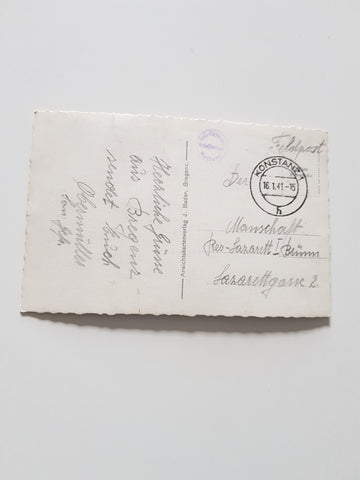 Herzliche Grüsse
aus Bregenz
sendet Euch
Ansichtskartenverlag J. Bader, Bregenz.
Feldpost
KONSTANZ 1
16.1.41.-15
h
Der
Manschaft
Res-Lazarett I Brünn
Lazarettgasse 2.